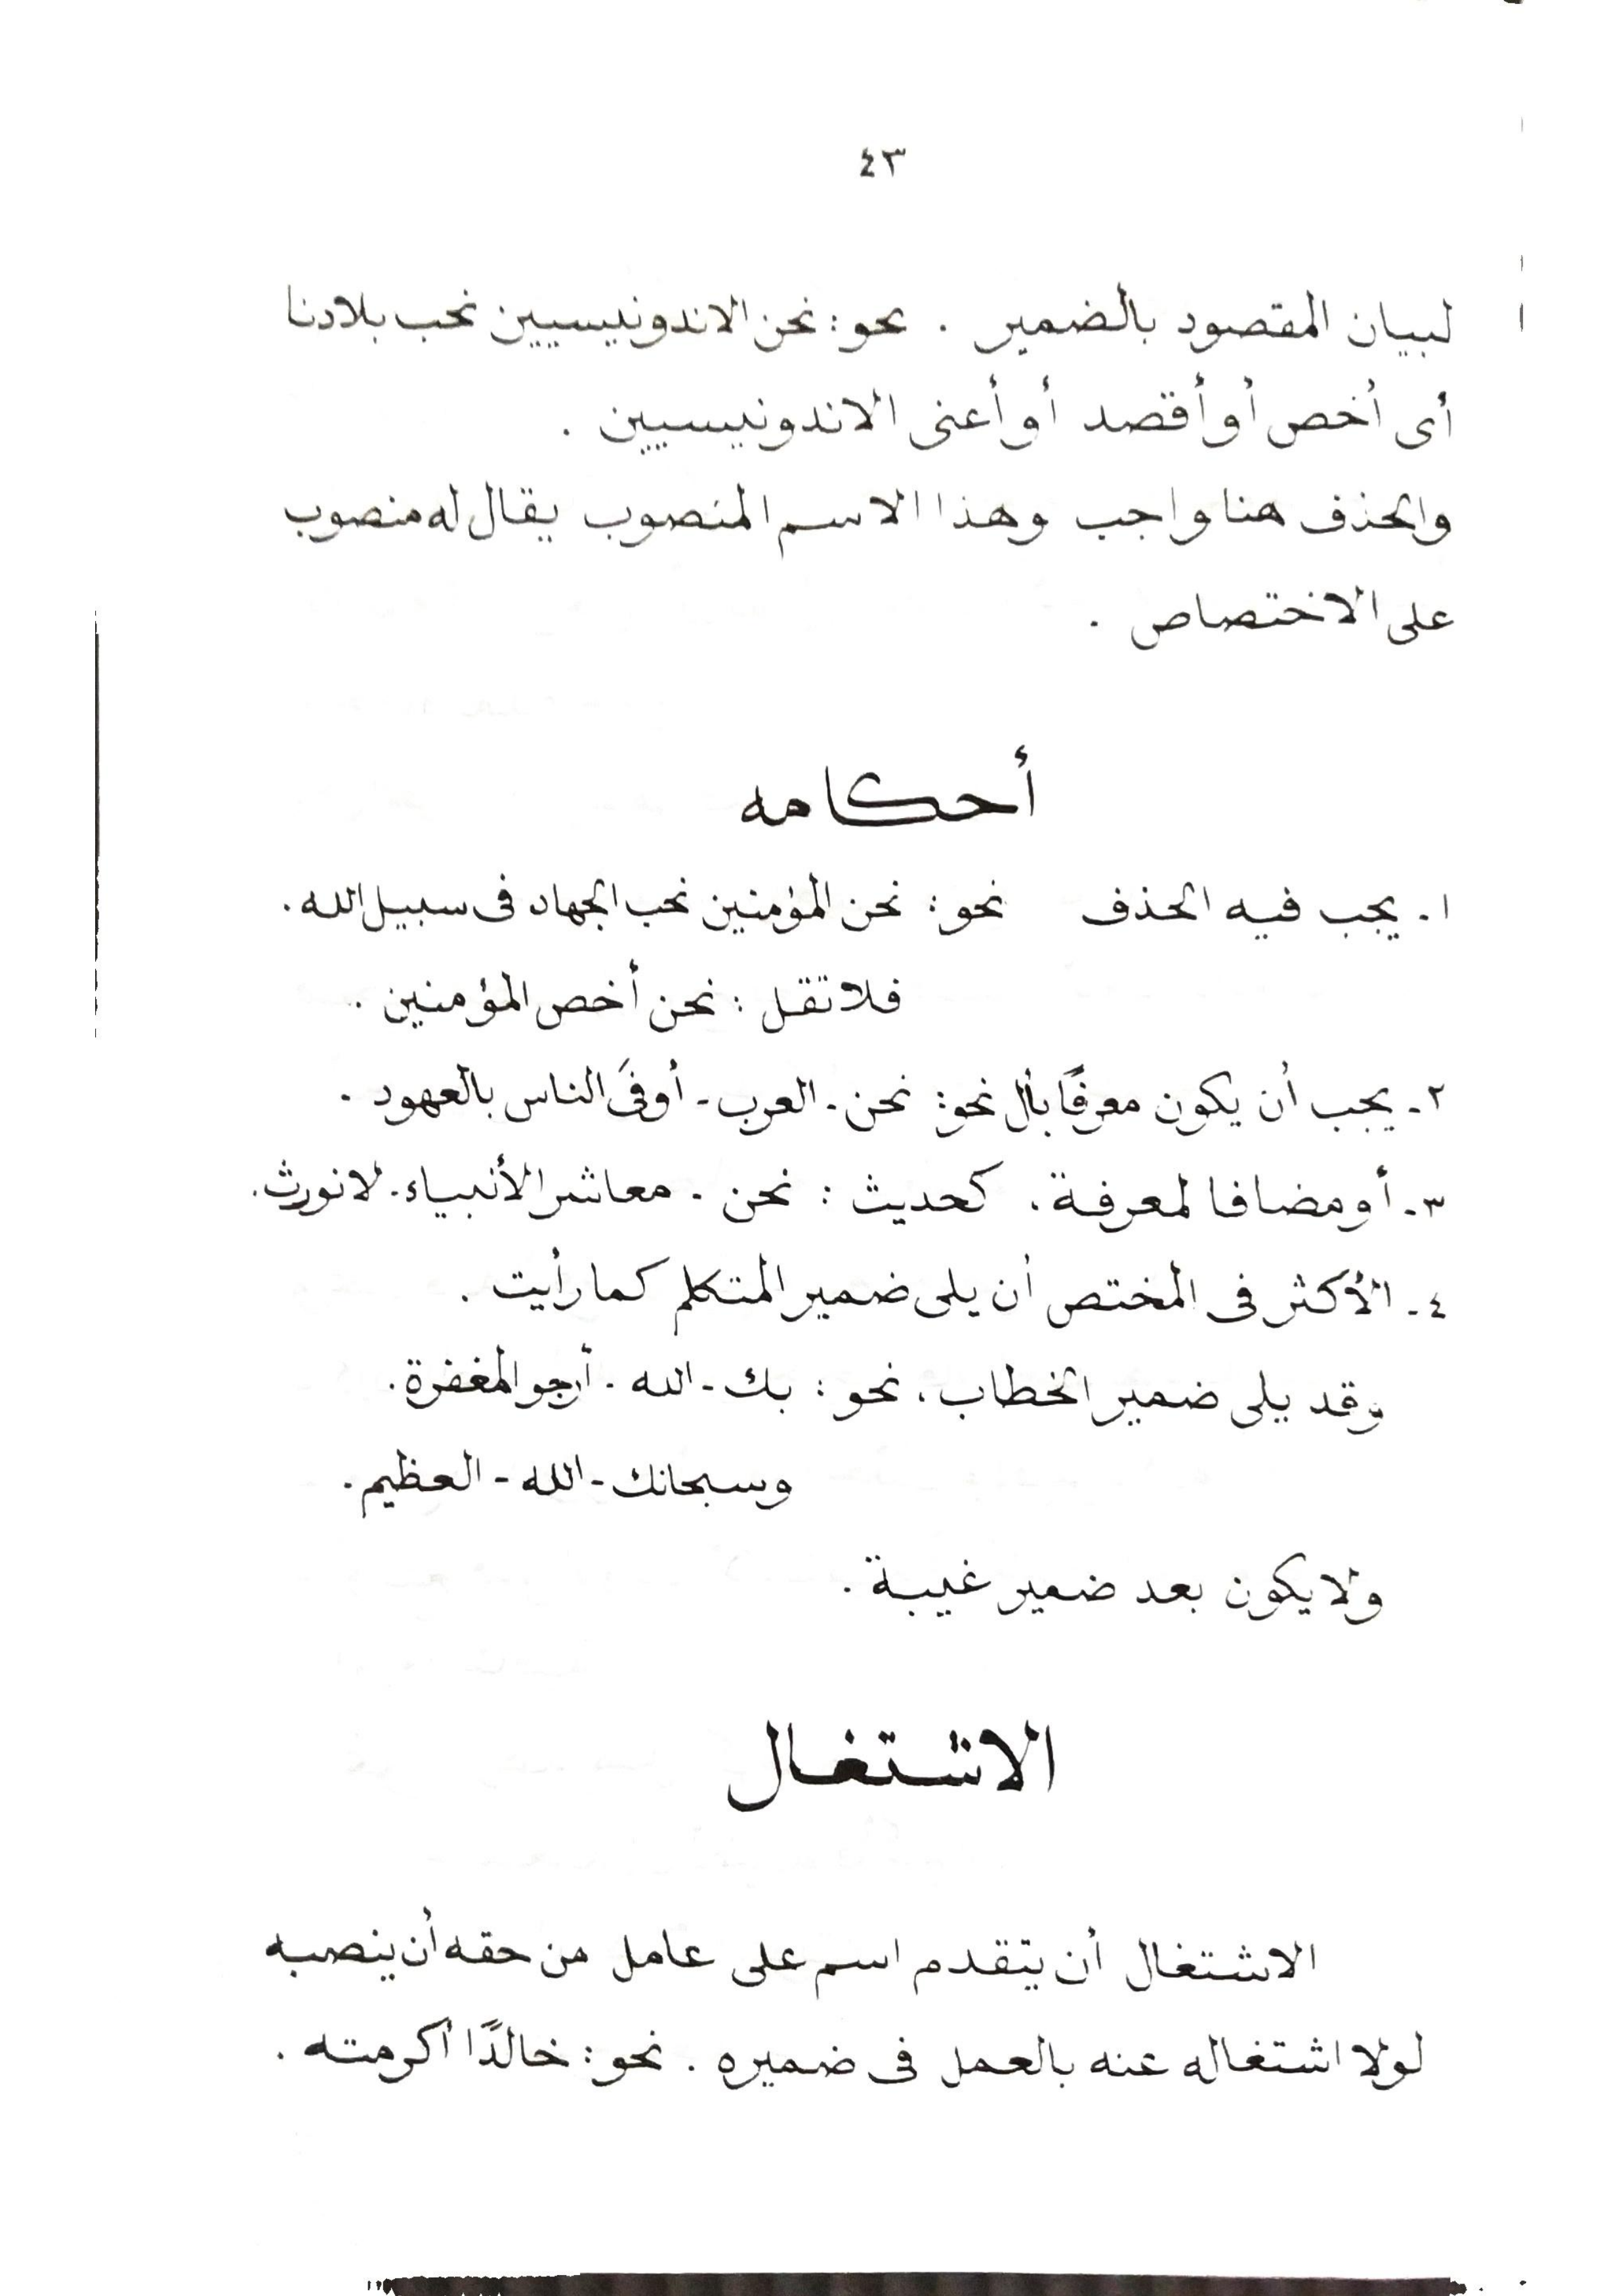 ٤٣
لبيان المقصود بالضمير . نحو : نحن الاندونيسيين نحب بلادنا
أى أخص أو أقصد أو أعنى الاندونيسيين .
والحذف هنا واجب وهذا الاسم المنصوب يقال له منصوب
على الاختصاص .
أحكامه
١ - يجب فيه الحذف نحو : نحن المؤمنين نحب الجهاد فى سبيل الله .
فلا تقل : نحن أخص المؤمنين .
٢ - يجب أن يكون معرفًا بأل نحو : نحن - العرب - أوفَى الناس بالعهود .
٣ - أو مضافا لمعرفة ، كحديث : نحن - معاشر الأنبياء - لا نورث .
٤ - الأكثر فى المختص أن يلى ضمير المتكلم كما رأيت .
وقد يلى ضمير الخطاب ، نحو : بك - الله - أرجو المغفرة .
وسبحانك - الله - العظيم .
ولا يكون بعد ضمير غيبة .
الاشتغال
الاشتغال أن يتقدم اسم على عامل من حقه أن ينصبه
لولا اشتغاله عنه بالعمل فى ضميره . نحو : خالدًا أكرمته .